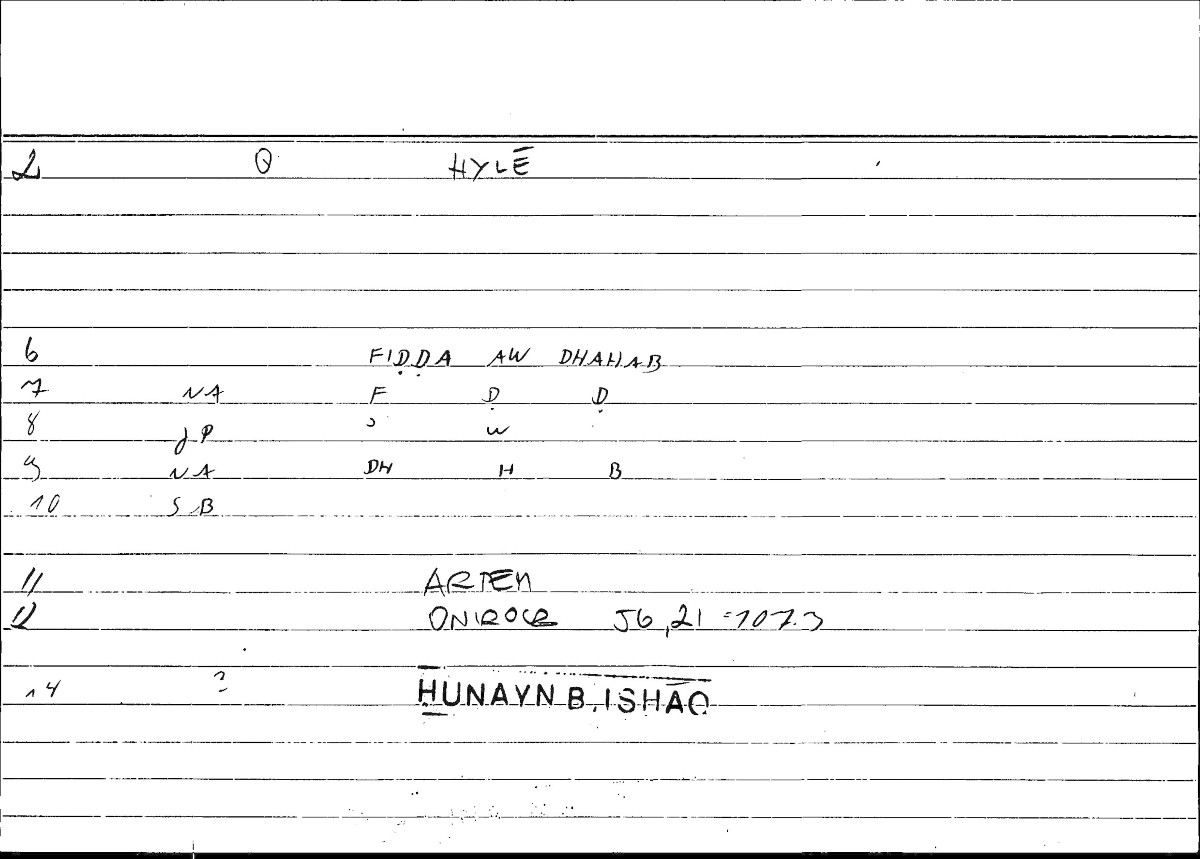 2 Q HYLĒ
6 FIḌḌA AW DHAHAB
7 NA F Ḍ Ḍ
8 JP ʾ W
9 NA DH H B
10 SB
11 ARTEM
12 ONIROCR 56,21 = 107.3
14 ? ḤUNAYN B. ISḤĀQ